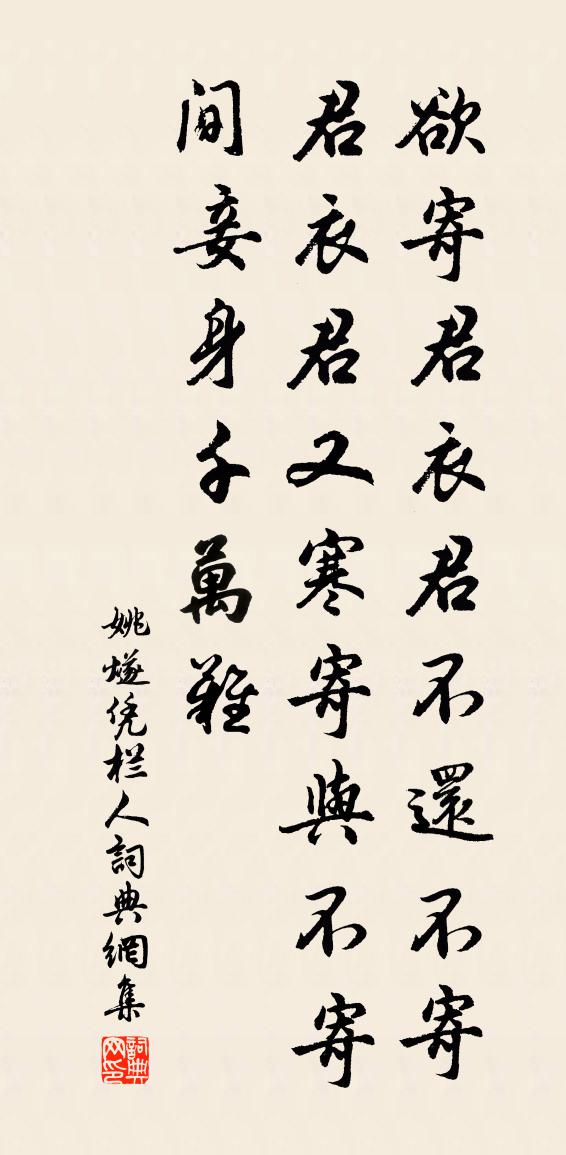 欲寄君衣君不還不寄
君衣君又寒寄與不寄
間妾身千萬難
姚燧凭栏人詞典網集
詞典网印